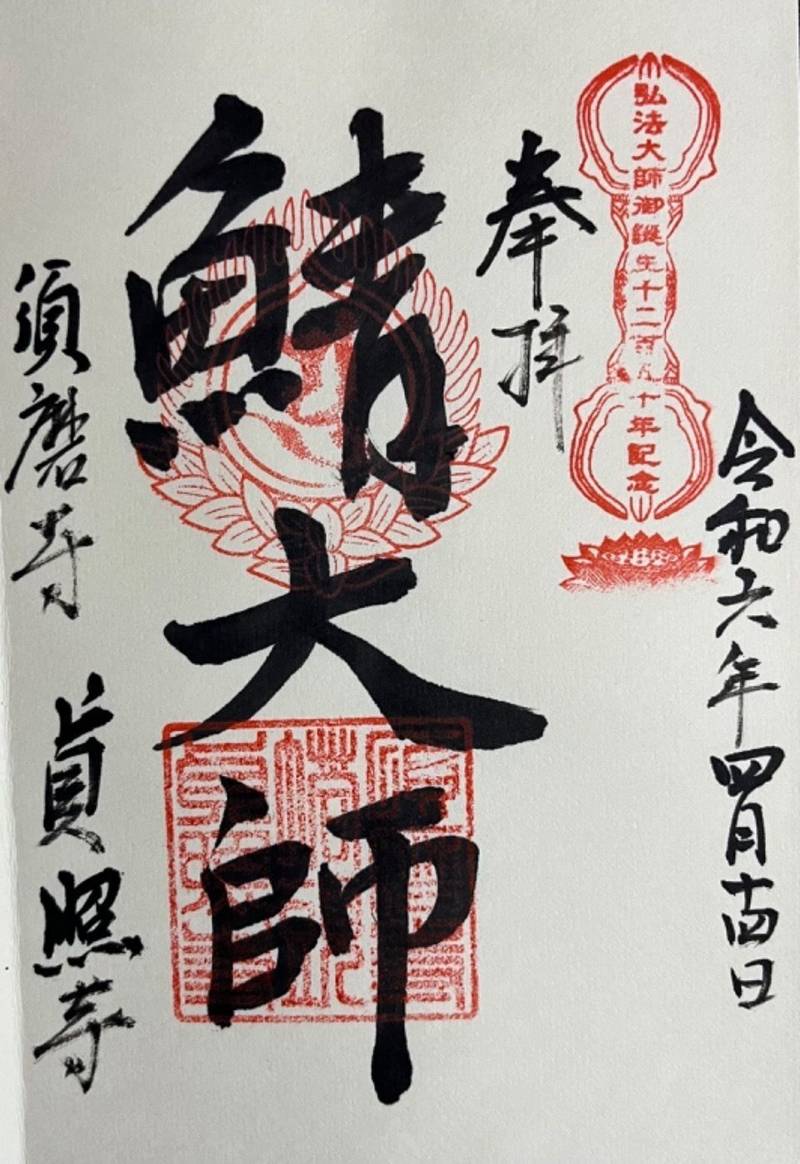 弘法大師御誕生千二百五十年記念
令和六年四月十四日
奉拝
鯖大師
須磨寺 貞照寺